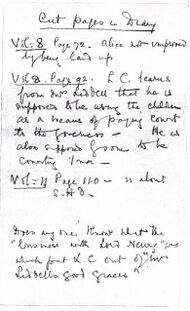 Cut pages in Diary
Vol: 8 Page 72. Alice not improved
by being laid up
Vol: 8. Page 92. L.C. learns
from Mrs Liddell that he is
supposed to be using the children
as a means of paying court
to the governess – He is
also supposed soon to be
courting Ina –
Vol: 11 Page 110 – is about
S.H.D.
Does any one know what the
"business with Lord Newry" was
which put L.C out of Mrs
Liddells good graces